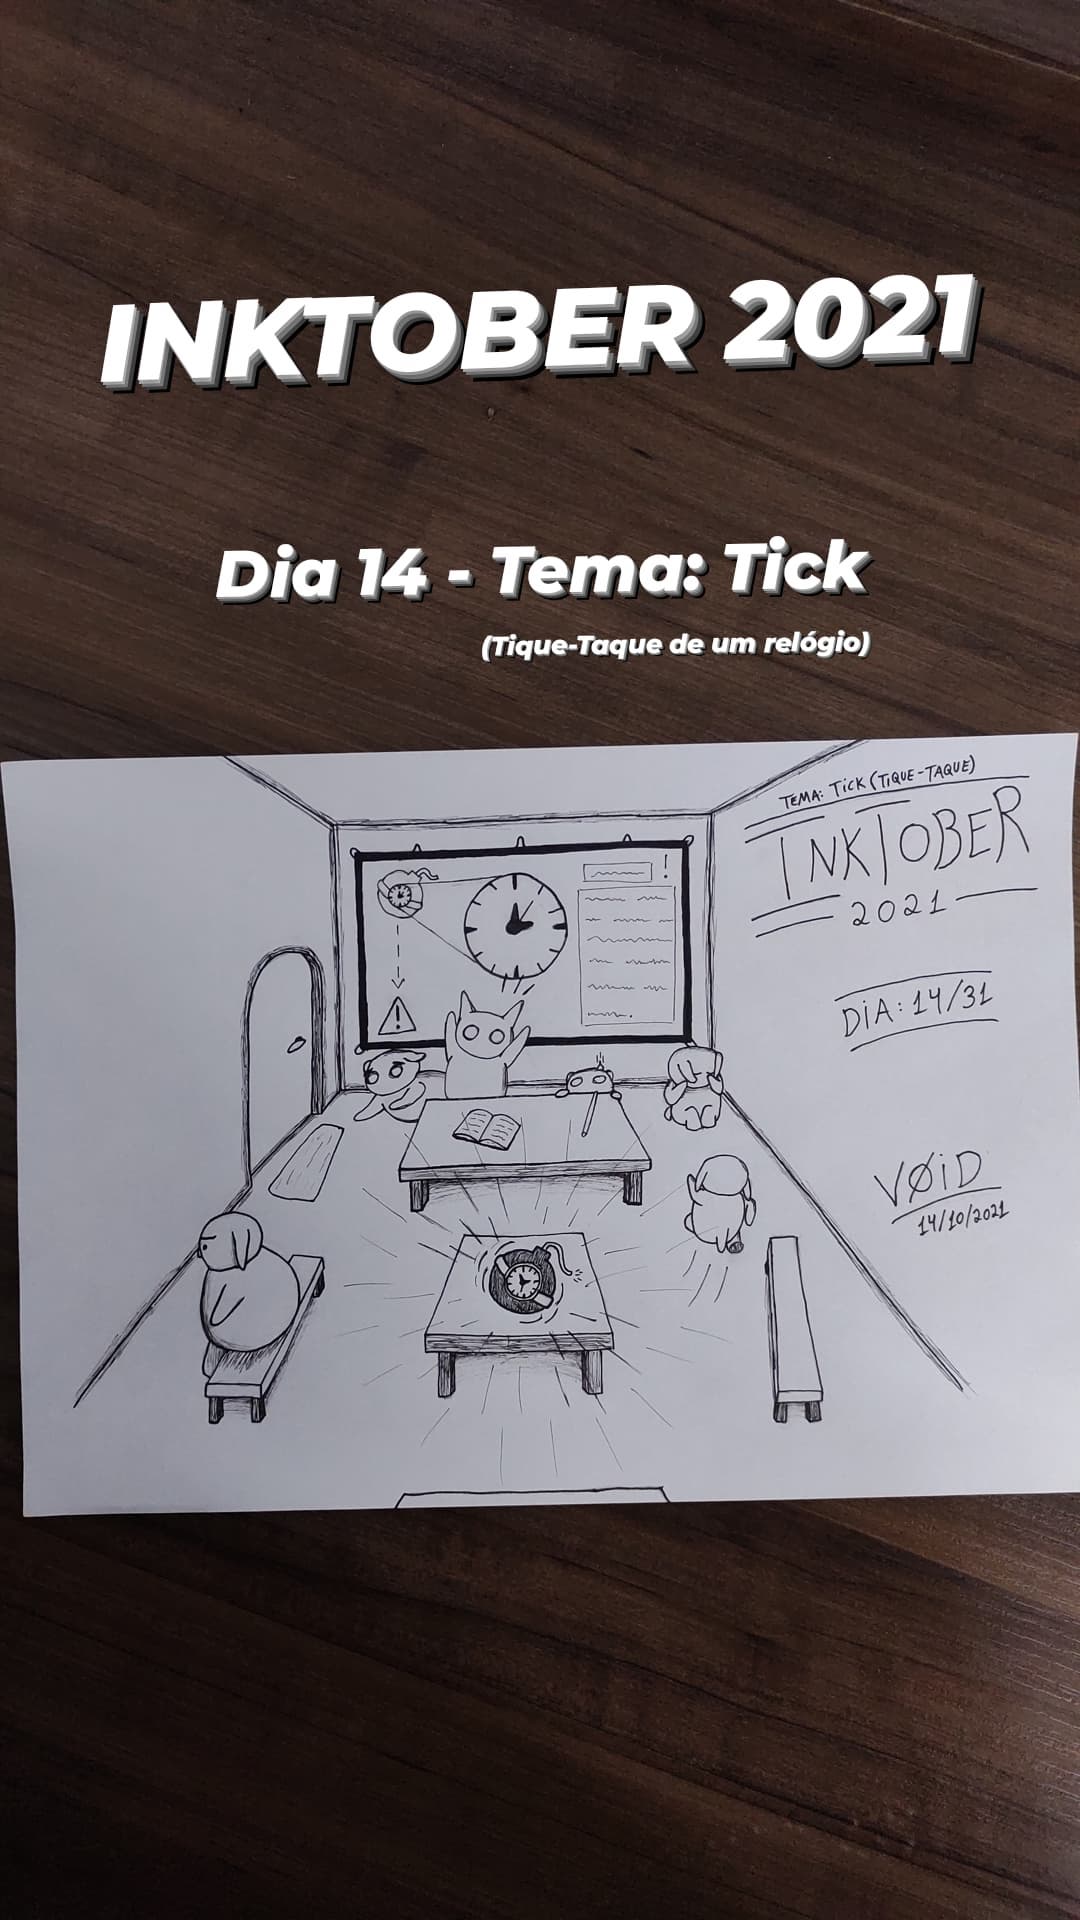 INKTOBER 2021
Dia 14 - Tema: Tick
(Tique-Taque de um relógio)
TEMA: TICK (TIQUE-TAQUE)
INKTOBER
2021
!
DIA: 14/31
!
VØID
14/10/2021